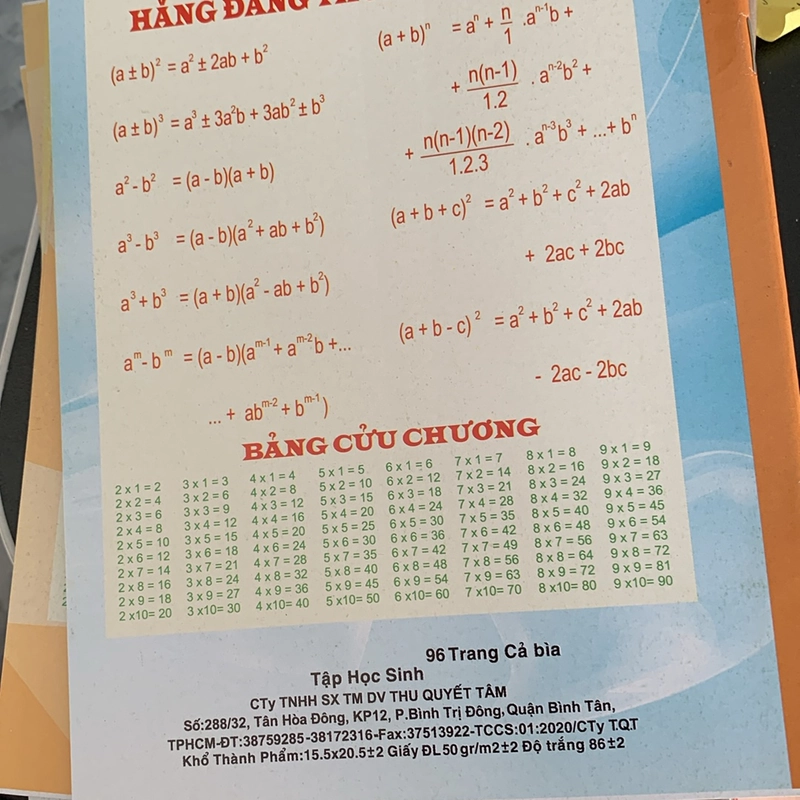 HẰNG ĐẲNG
(a ± b)² = a² ± 2ab + b²
(a ± b)³ = a³ ± 3a²b + 3ab² ± b³
a² - b² = (a - b)(a + b)
a³ - b³ = (a - b)(a² + ab + b²)
a³ + b³ = (a + b)(a² - ab + b²)
aᵐ - bᵐ = (a - b)(aᵐ⁻¹ + aᵐ⁻²b +...
...+ abᵐ⁻² + bᵐ⁻¹)
(a + b)ⁿ = aⁿ + n/1 .aⁿ⁻¹b +
+ n(n-1)/1.2 . aⁿ⁻²b² +
+ n(n-1)(n-2)/1.2.3 . aⁿ⁻³b³ + ...+ bⁿ
(a + b + c)² = a² + b² + c² + 2ab
+ 2ac + 2bc
(a + b - c)² = a² + b² + c² + 2ab
- 2ac - 2bc
BẢNG CỬU CHƯƠNG
2 x 1 = 2 3 x 1 = 3 4 x 1 = 4 5 x 1 = 5 6 x 1 = 6 7 x 1 = 7 8 x 1 = 8 9 x 1 = 9
2 x 2 = 4 3 x 2 = 6 4 x 2 = 8 5 x 2 = 10 6 x 2 = 12 7 x 2 = 14 8 x 2 = 16 9 x 2 = 18
2 x 3 = 6 3 x 3 = 9 4 x 3 = 12 5 x 3 = 15 6 x 3 = 18 7 x 3 = 21 8 x 3 = 24 9 x 3 = 27
2 x 4 = 8 3 x 4 = 12 4 x 4 = 16 5 x 4 = 20 6 x 4 = 24 7 x 4 = 28 8 x 4 = 32 9 x 4 = 36
2 x 5 = 10 3 x 5 = 15 4 x 5 = 20 5 x 5 = 25 6 x 5 = 30 7 x 5 = 35 8 x 5 = 40 9 x 5 = 45
2 x 6 = 12 3 x 6 = 18 4 x 6 = 24 5 x 6 = 30 6 x 6 = 36 7 x 6 = 42 8 x 6 = 48 9 x 6 = 54
2 x 7 = 14 3 x 7 = 21 4 x 7 = 28 5 x 7 = 35 6 x 7 = 42 7 x 7 = 49 8 x 7 = 56 9 x 7 = 63
2 x 8 = 16 3 x 8 = 24 4 x 8 = 32 5 x 8 = 40 6 x 8 = 48 7 x 8 = 56 8 x 8 = 64 9 x 8 = 72
2 x 9 = 18 3 x 9 = 27 4 x 9 = 36 5 x 9 = 45 6 x 9 = 54 7 x 9 = 63 8 x 9 = 72 9 x 9 = 81
2 x10= 20 3 x10= 30 4 x10= 40 5 x10= 50 6 x10= 60 7 x10= 70 8 x10= 80 9 x10= 90
96 Trang Cả bìa
Tập Học Sinh
CTy TNHH SX TM DV THU QUYẾT TÂM
Số:288/32, Tân Hòa Đông, KP12, P.Bình Trị Đông, Quận Bình Tân,
TPHCM-ĐT:38759285-38172316-Fax:37513922-TCCS:01:2020/CTy T.Q.T
Khổ Thành Phẩm:15.5x20.5±2 Giấy ĐL50gr/m2±2 Độ trắng 86±2